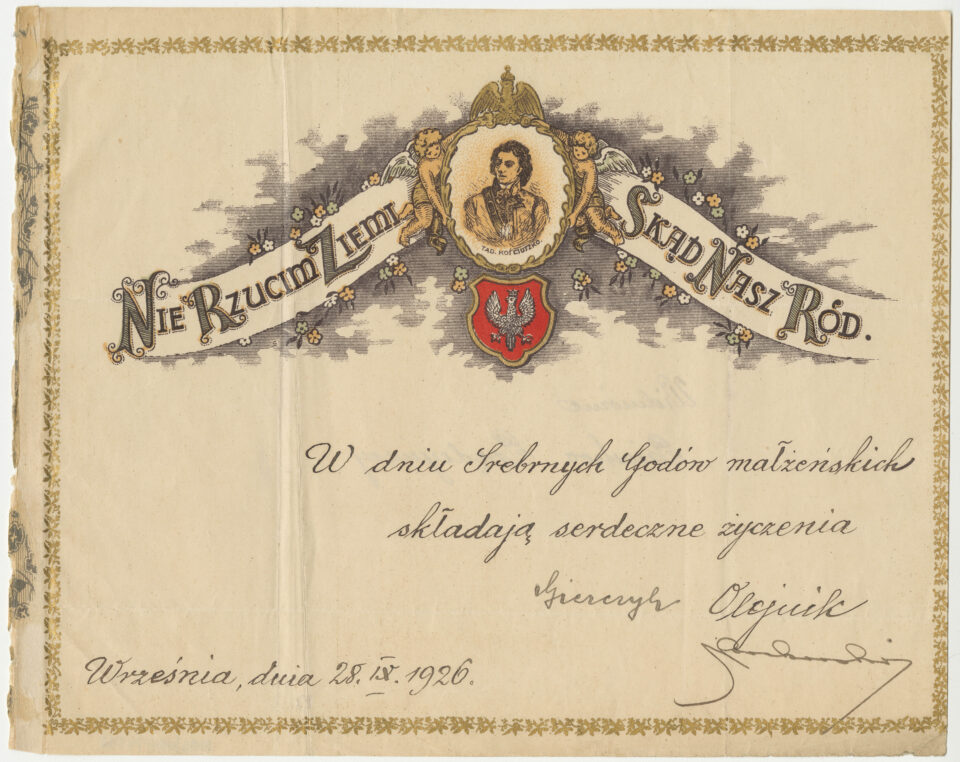 NIE RZUCIM ZIEMI
SKĄD NASZ RÓD.
TAD. KOŚCIUSZKO.
W dniu Srebrnych Godów małżeńskich
składają serdeczne życzenia
Olejnik
Września, dnia 28. IX. 1926.